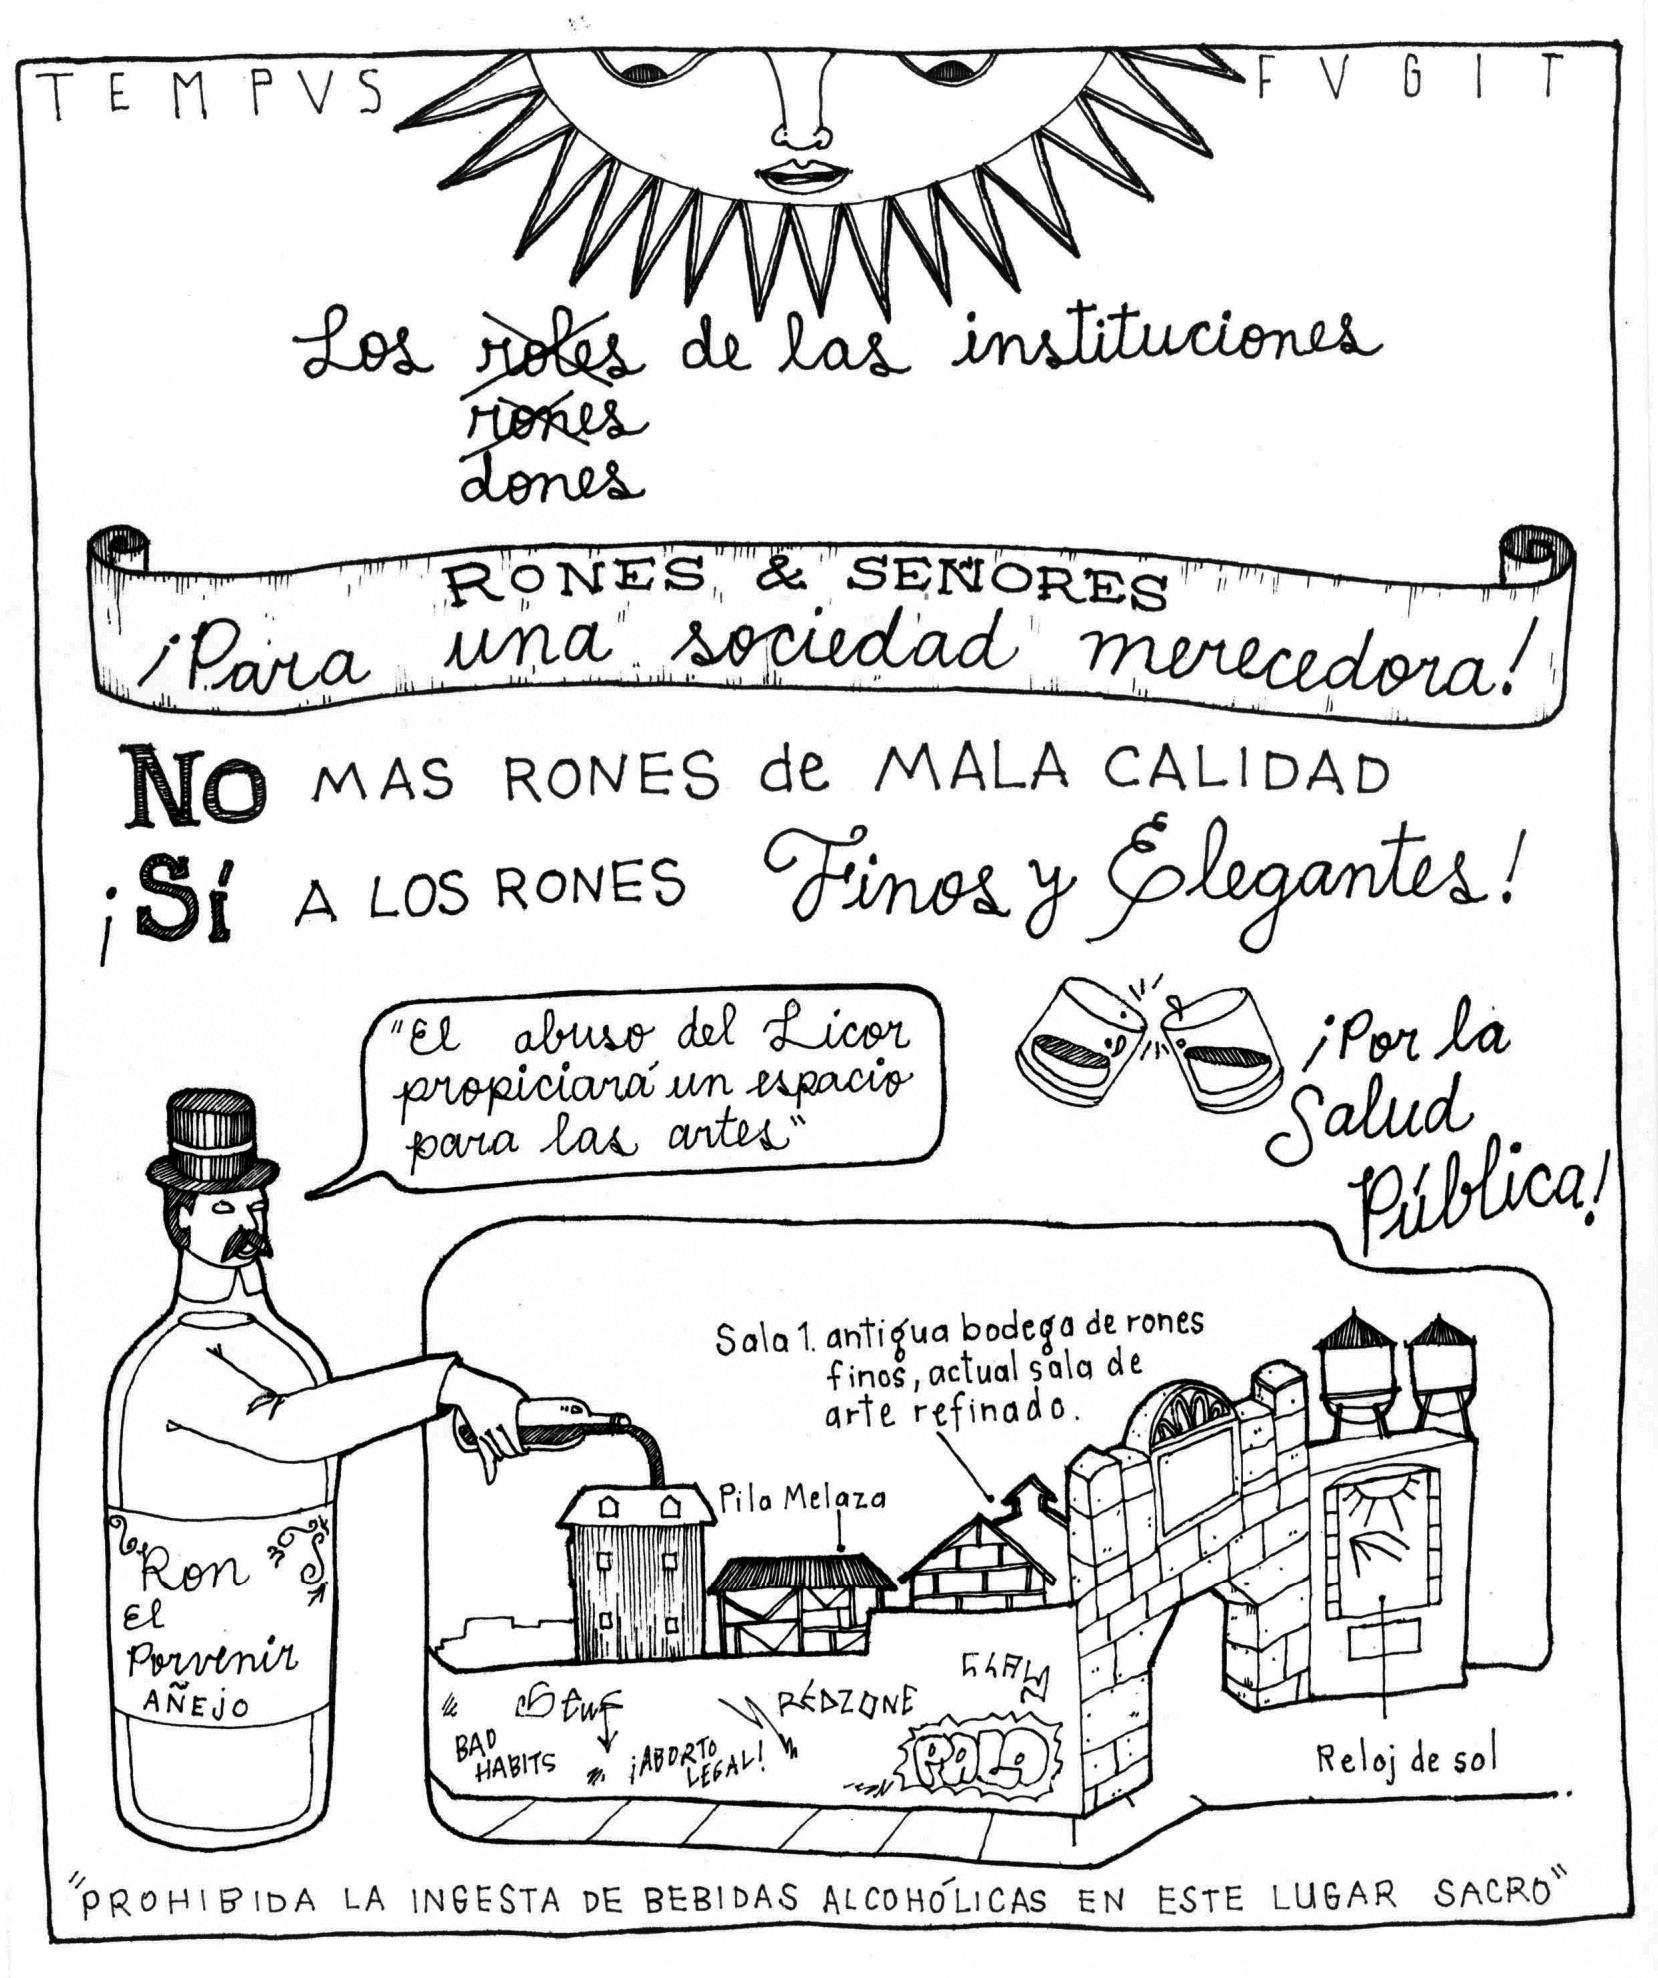 TEMPVS FVGIT
Los roles de las instituciones
rones
dones
RONES & SEÑORES
¡Para una sociedad merecedora!
NO MAS RONES de MALA CALIDAD
¡SÍ A LOS RONES Finos y Elegantes!
"El abuso del Licor
propiciará un espacio
para las artes"
¡Por la
Salud
Pública!
Sala 1. antigua bodega de rones
finos, actual sala de
arte refinado.
Pila Melaza
Ron
El
Porvenir
AÑEJO
Stuf
REDZONE
BAD
HABITS
¡ABORTO
LEGAL!
PALO
Reloj de sol
"PROHIBIDA LA INGESTA DE BEBIDAS ALCOHÓLICAS EN ESTE LUGAR SACRO"